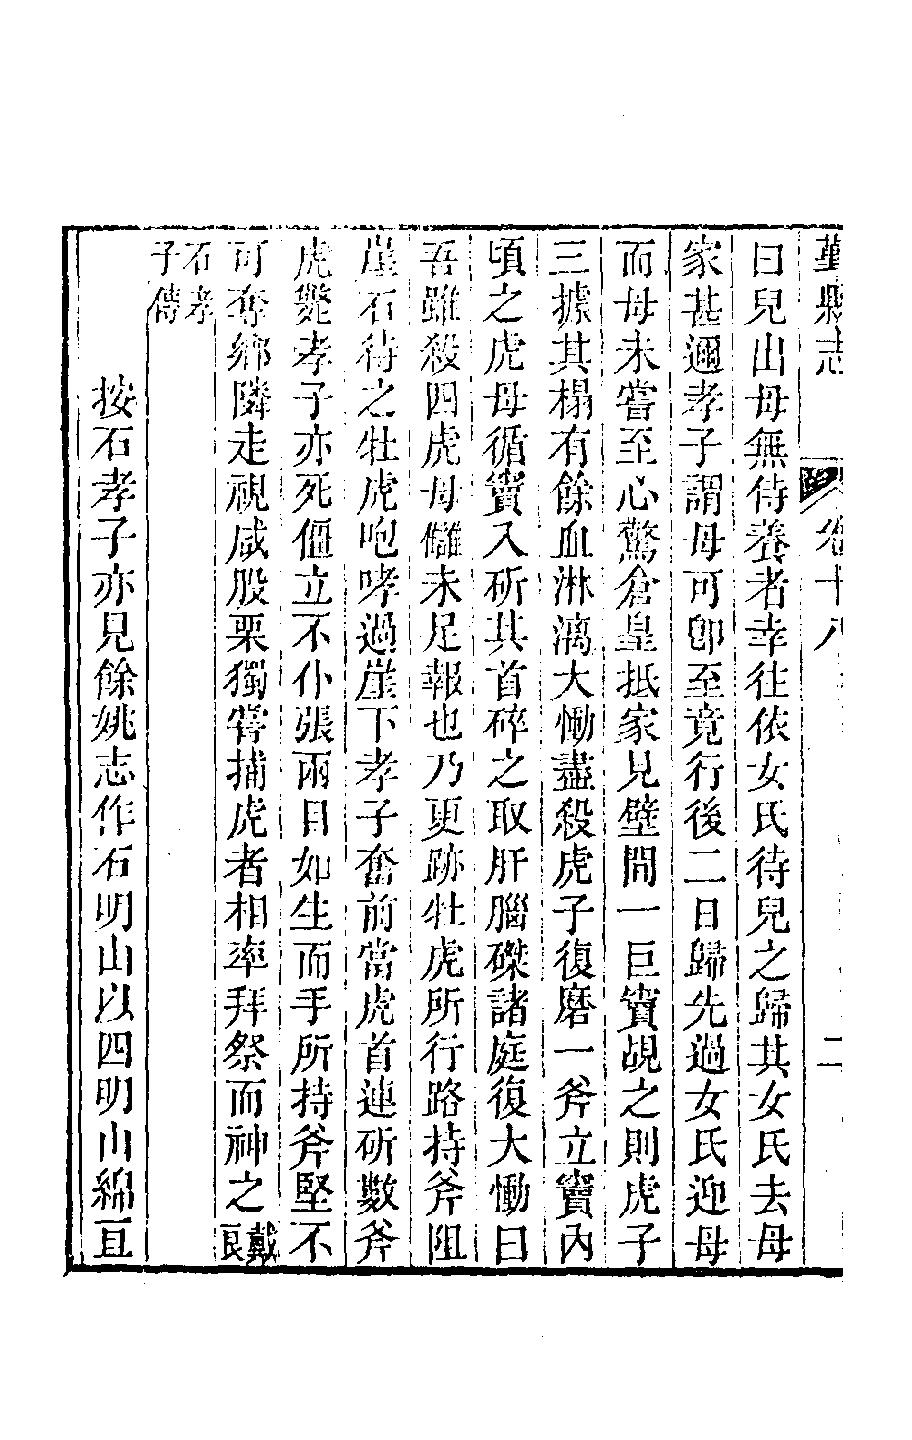 鄞縣志 卷十八 二
曰兒出母無侍養者幸往依女氏待兒之歸其女氏去母
家甚邇孝子謂母可卽至竟行後二日歸先過女氏迎母
而母未嘗至心驚倉皇抵家見壁間一巨竇覘之則虎子
三據其榻有餘血淋漓大慟盡殺虎子復磨一斧立竇內
頃之虎母循竇入斫其首碎之取肝腦磔諸庭復大慟曰
吾雖殺四虎母讎未足報也乃更跡牡虎所行路持斧阻
崖石待之牡虎咆哮過崖下孝子奮前當虎首連斫數斧
虎斃孝子亦死僵立不仆張兩目如生而手所持斧堅不
可奪鄉隣走視咸股栗獨嘗捕虎者相率拜祭而神之戴良
石孝子傳
按石孝子亦見餘姚志作石明山以四明山綿亘